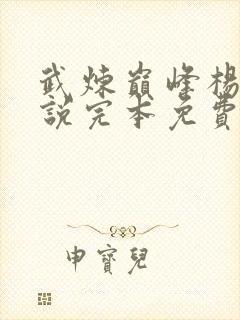 武煉巔峰楊
說完本免費
申寶兒